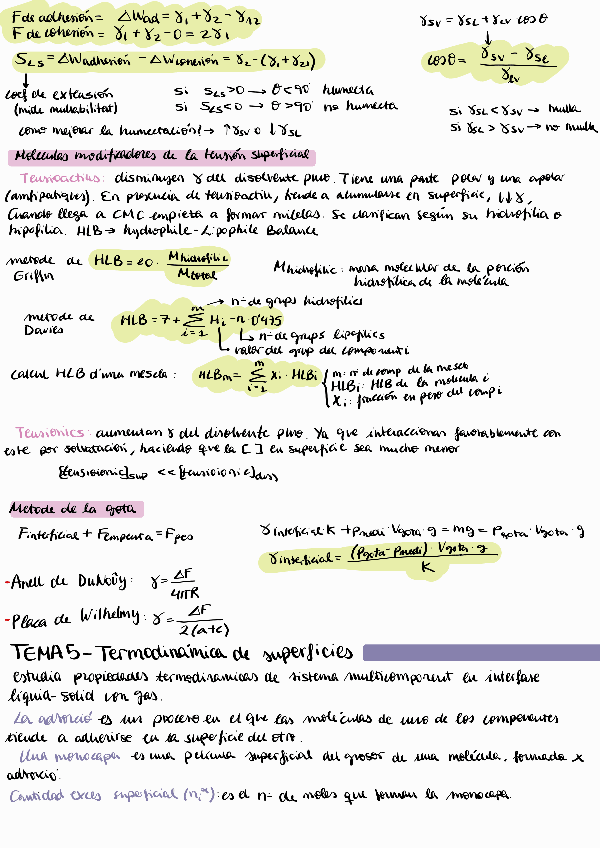 F de adhesión = ΔWad = γ₁ + γ₂ − γ₁₂
F de cohesión = γ₁ + γ₂ − 0 = 2γ₁
γsv = γsL + γLv cosθ
S_LS = ΔWadhesión − ΔWcohesión = γ₂ − (γ₁ + γ₂₁)
cosθ = (γsv − γsL) / γLv
coef de extensión si S_LS > 0 → θ < 90 humecta
(mide mullabilitat) si S_LS < 0 → θ > 90 no humecta
si γsL < γsv → mulla
si γsL > γsv → no mulla
como mejorar la humectación? → ↑γsv o ↓γsL
Moléculas modificadores de la tensión superficial
Tensioactius: disminuyen γ del disolvente puro. Tiene una parte polar y una apolar
(amfipatiques). En presencia de tensioactiu, tiende a acumularse en superficie, ↓↓γ,
Cuando llega a CMC empieza a formar micelas. Se clasifican según su hidrofilia o
lipofilia. HLB → hydrophile-Lipophile Balance
metode de Griffin HLB = 20 · Mhidrofilic / Mtotal
Mhidrofilic: masa molecular de la porción
hidrofílica de la molécula
→ nº de grups hidrofilics
metode de Davies HLB = 7 + Σ(i=1, m) Hi − n · 0'475
↳ nº de grups lipofílics
↳ valor del grup del component i
calcul HLB d'una mescla: HLBm = Σ(i=1, m) xi · HLBi
m: nº de comp de la mescla
HLBi: HLB de la molécula i
Xi: fracción en peso del comp i
Tensionics: aumentan γ del disolvente puro. Ya que interaccionan favorablemente con
este por solvatación, haciendo que la [ ] en superficie sea mucho menor
[tensioionic]sup << [tensioionic]diss
Metode de la gota
Finterficial + Fempenta = Fpes
γinterficial · K + ρmedi · Vgota · g = mg = ρgota · Vgota · g
γinterficial = (ρgota − ρmedi) · Vgota · g / K
- Anell de DuNoüy: γ = ΔF / 4πR
- Placa de Wilhelmy: γ = ΔF / 2(a+c)
TEMA 5 - Termodinámica de superficies
estudia propiedades termodinamicas de sistema multicomponent en interfase
líquid-solid con gas.
La adsorció es un proceso en el que las moléculas de uno de los componentes
tiende a adherirse en la superficie del otro.
Una monocapa es una película superficial del grosor de una molécula, formada x
adsorció.
Cantidad excés superficial (niˢ): es el nº de moles que forman la monocapa.